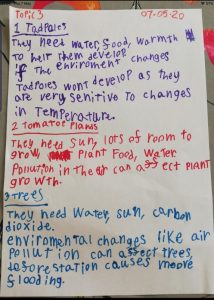 Topic3 07-05-20
1 Tadpoles
They need water, food, warmth
to help them develop
if the enviroment changes
Tadpoles wont develop as they
are very senitive to changes
in Temperature.
2 Tomatoe Plants
They need sun, lots of room to
grow, Plant Food, Water.
Pollution in the air can affect PLANT
growth.
3 Trees
They need Water, sun, carbon
dioxide.
enviromental changes like air
pollution can affect trees,
deforestation causes moore
flooding.